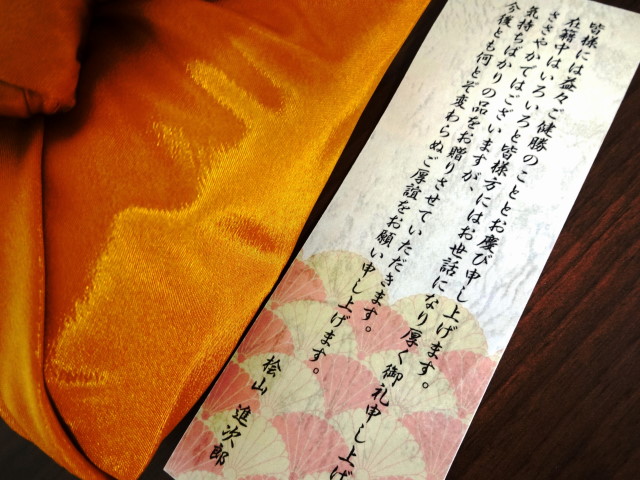 皆様には益々ご健勝のこととお慶び申し上げます。
在籍中はいろいろと皆様方にはお世話になり厚く御礼申し上げ
ささやかではございますが、
気持ちばかりの品をお贈りさせていただきます。
今後とも何とぞ変わらぬご厚誼をお願い申し上げます。
桧山 進次郎